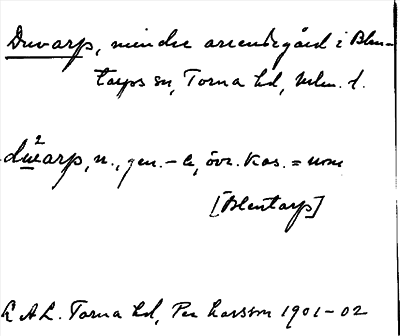 Duvarp, mindre arrendegård i Blen-
tarps sn, Torna hd, Mlm. l.
dŭ²arp, n., gen. – , övr. kas. = nom
[Blentarp]
L A L. Torna hd, Per Larsson 1901–02